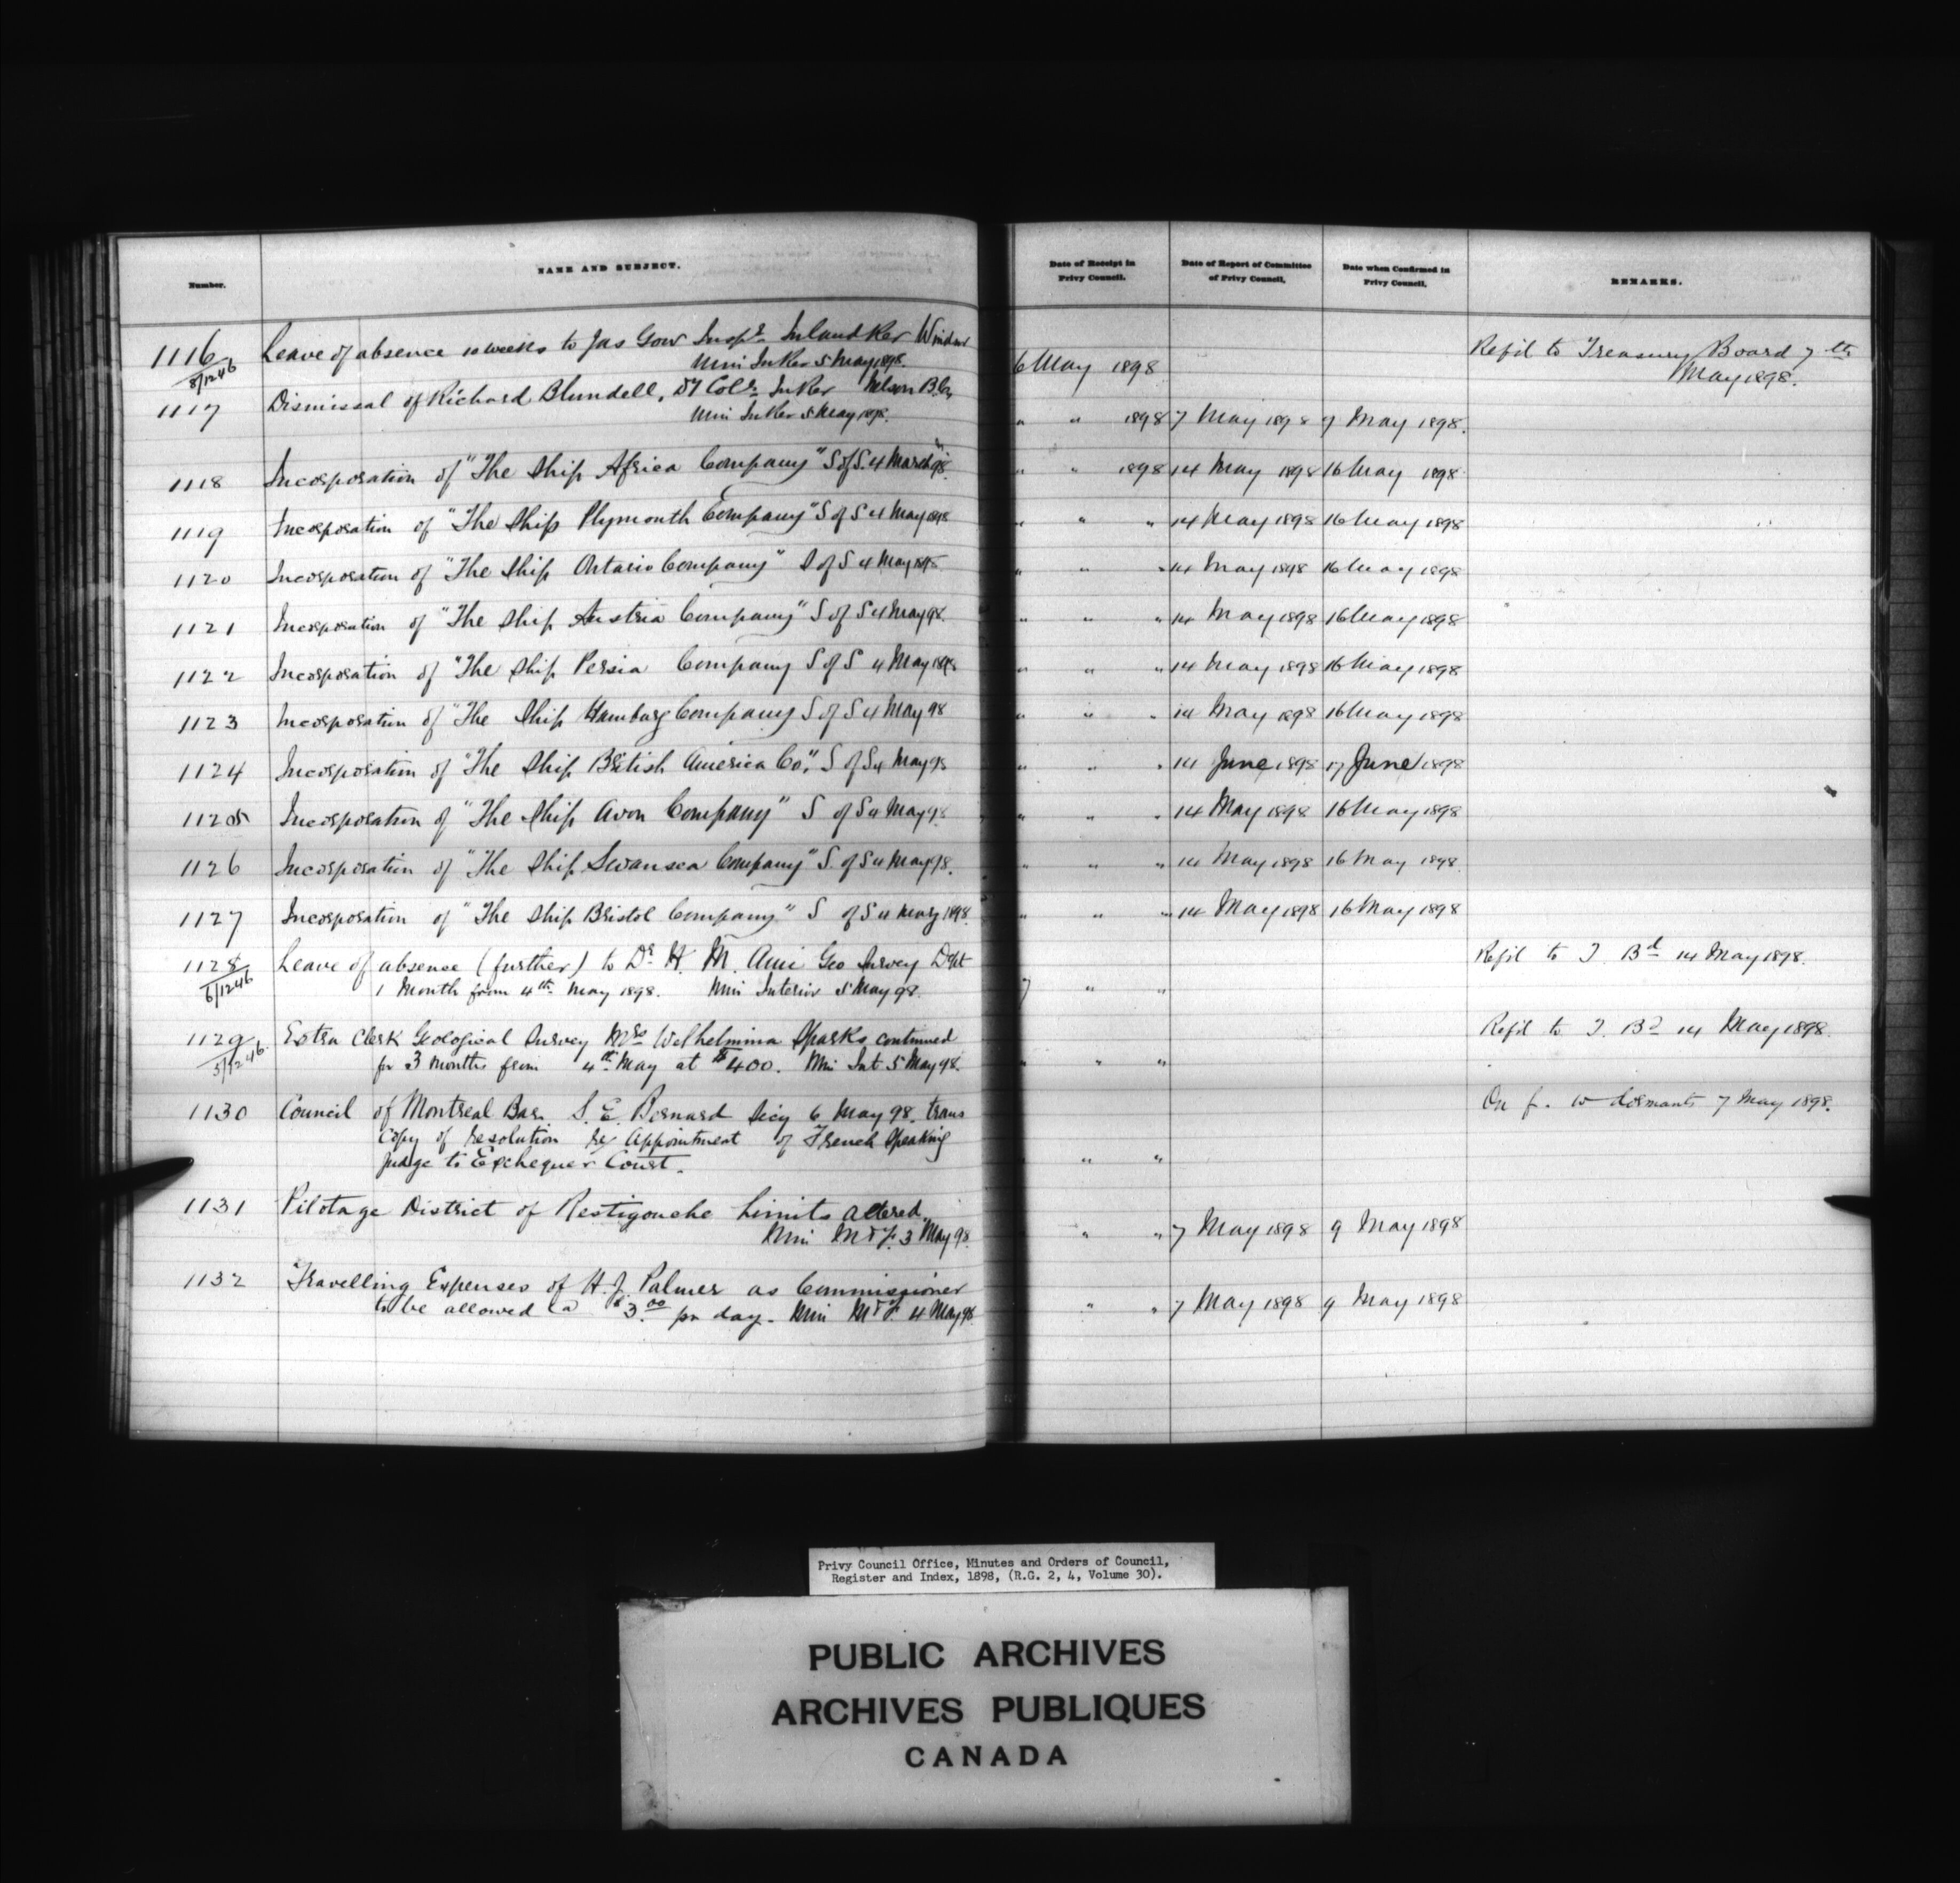 Number. NAME AND SUBJECT. Date of Receipt in Privy Council. Date of Report of Committee of Privy Council. Date when Confirmed in Privy Council. REMARKS.
1116 Leave of absence 10 weeks to Jas Gow Inspr Inland Rev Windsor Refd to Treasury Board 7th
8/1246 Min In Rev 5 May 1898. 6 May 1898 May 1898.
1117 Dismissal of Richard Blundell, Dy Colr In Rev Nelson B.C.
Min In Rev 5 May 1898. " " 1898 7 May 1898 9 May 1898.
1118 Incorporation of "The Ship Africa Company" S of S. 4 March 98. " " 1898 14 May 1898 16 May 1898
1119 Incorporation of "The Ship Plymouth Company" S of S 4 May 1898 " " " 14 May 1898 16 May 1898
1120 Incorporation of "The Ship Ontario Company" S of S 4 May 1898 " " " 14 May 1898 16 May 1898
1121 Incorporation of "The Ship Austria Company" S of S 4 May 98. " " " 14 May 1898 16 May 1898
1122 Incorporation of "The Ship Persia Company S of S 4 May 1898 " " " 14 May 1898 16 May 1898
1123 Incorporation of "The Ship Hamburg Company S of S 4 May 98 " " " 14 May 1898 16 May 1898
1124 Incorporation of "The Ship British America Co." S of S 4 May 98 " " " 14 June 1898 17 June 1898
1125 Incorporation of "The Ship Avon Company" S of S 4 May 98 " " " 14 May 1898 16 May 1898
1126 Incorporation of "The Ship Swansea Company" S. of S 4 May 98. " " " 14 May 1898 16 May 1898
1127 Incorporation of "The Ship Bristol Company" S of S 4 May 1898 " " " 14 May 1898 16 May 1898
1128 Leave of absence (further) to Dr. H. M. Ami Geo Survey Dept Refd to T. Bd 14 May 1898.
6/1246 1 Month from 4th May 1898. Min Interior 5 May 98. 7 " "
1129 Extra Clerk Geological Survey Mrs Welhelmina Sparks continued Refd to T. Bd 14 May 1898.
5/1246 for 3 months from 4th May at $400. Min Int 5 May 98. " " "
1130 Council of Montreal Bar. S. E. Bernard Secy 6 May 98. trans On f. w dormants 7 May 1898.
Copy of resolution re Appointment of French Speaking
Judge to Exchequer Court. " " "
1131 Pilotage District of Restigouche Limits altered.
Min M & F. 3 May 98. " " 7 May 1898 9 May 1898
1132 Travelling Expenses of H. J. Palmer as Commissioner
to be allowed @ $3.00 pr day. Min M & F. 4 May 98 " " 7 May 1898 9 May 1898
Privy Council Office, Minutes and Orders of Council,
Register and Index, 1898, (R.G. 2, 4, Volume 30).
PUBLIC ARCHIVES
ARCHIVES PUBLIQUES
CANADA